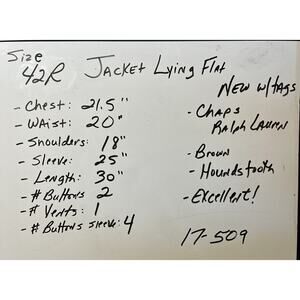 Size
42R Jacket Lying Flat
- Chest: 21.5"
- Waist: 20"
- Shoulders: 18"
- Sleeve: 25"
- Length: 30"
- # Buttons 2
- # Vents: 1
- # Buttons sleeve: 4
New w/tags
- Chaps
Ralph Lauren
- Brown
- Houndstooth
- Excellent!
17-509